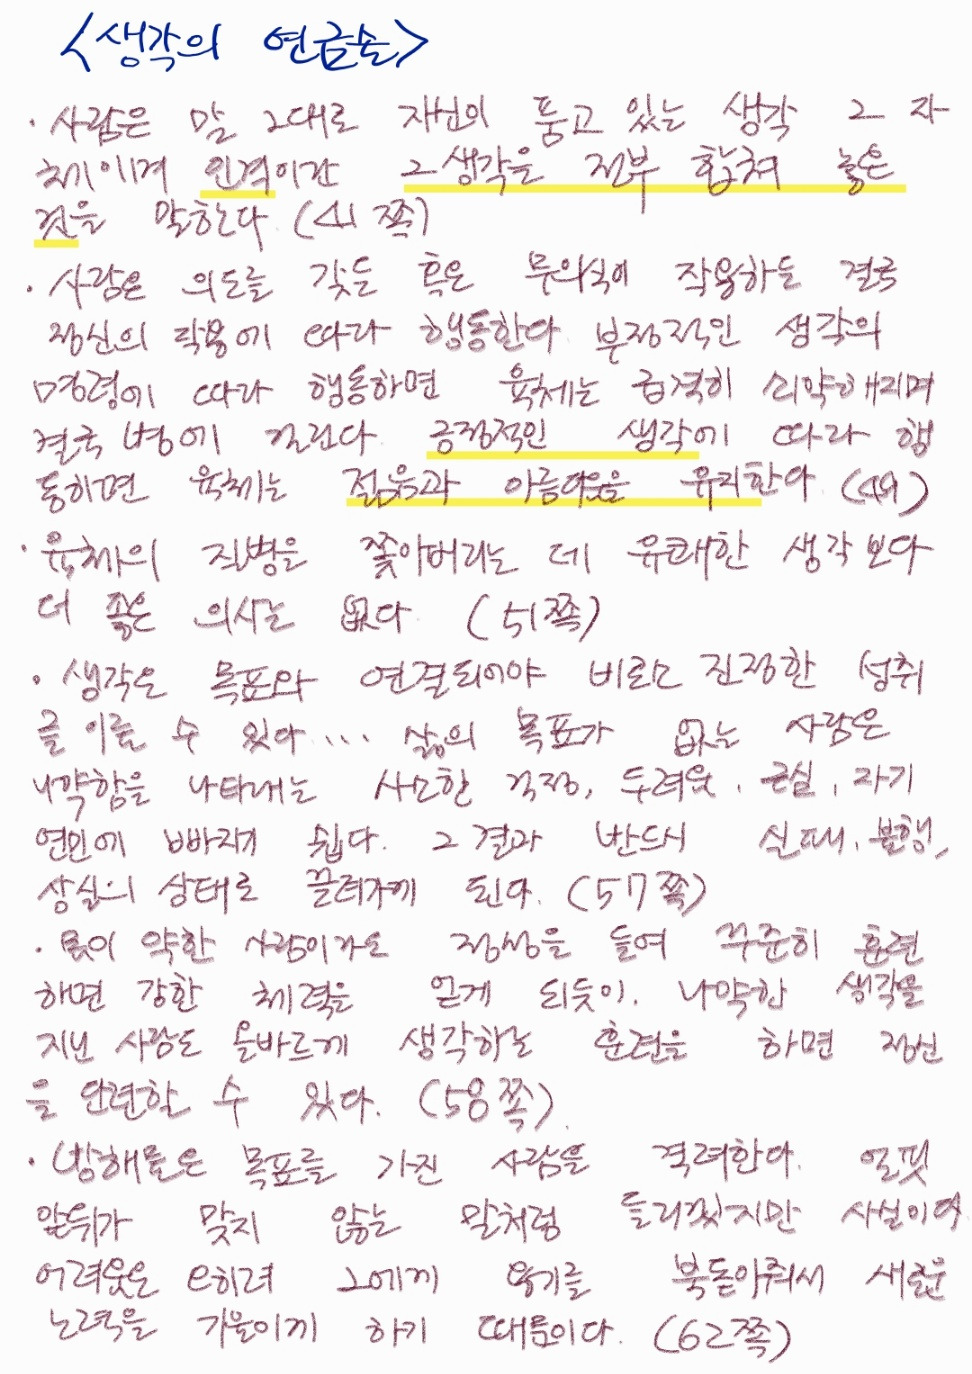 <생각의 연금술>
· 사람은 말 그대로 자신이 품고 있는 생각 그 자
체이며 인격이란 그 생각을 전부 합쳐 놓은
것을 말한다. (41쪽)
· 사람은 의도를 갖든 혹은 무의식에 작용하든 결국
정신의 작용에 따라 행동한다. 부정적인 생각의
명령에 따라 행동하면 육체는 급격히 쇠약해지며
결국 병에 걸린다. 긍정적인 생각에 따라 행
동하면 육체는 젊음과 아름다움을 유지한다. (49)
· 육체의 질병을 쫓아버리는 데 유쾌한 생각보다
더 좋은 의사는 없다. (51쪽)
· 생각은 목표와 연결되어야 비로소 진정한 성취
를 이룰 수 있다... 삶의 목표가 없는 사람은
나약함을 나타내는 사소한 걱정, 두려움, 근심, 자기
연민에 빠지기 쉽다. 그 결과 반드시 실패, 불행,
상실의 상태로 끌려가게 된다. (57쪽)
· 몸이 약한 사람이라도 정성을 들여 꾸준히 훈련
하면 강한 체력을 얻게 되듯이, 나약한 생각을
지닌 사람도 올바르게 생각하는 훈련을 하면 정신
을 단련할 수 있다. (58쪽)
· 방해물은 목표를 가진 사람을 격려한다. 얼핏
앞뒤가 맞지 않는 말처럼 들리겠지만 사실이다.
어려움은 오히려 그에게 용기를 북돋아줘서 새로운
노력을 기울이게 하기 때문이다. (62쪽)